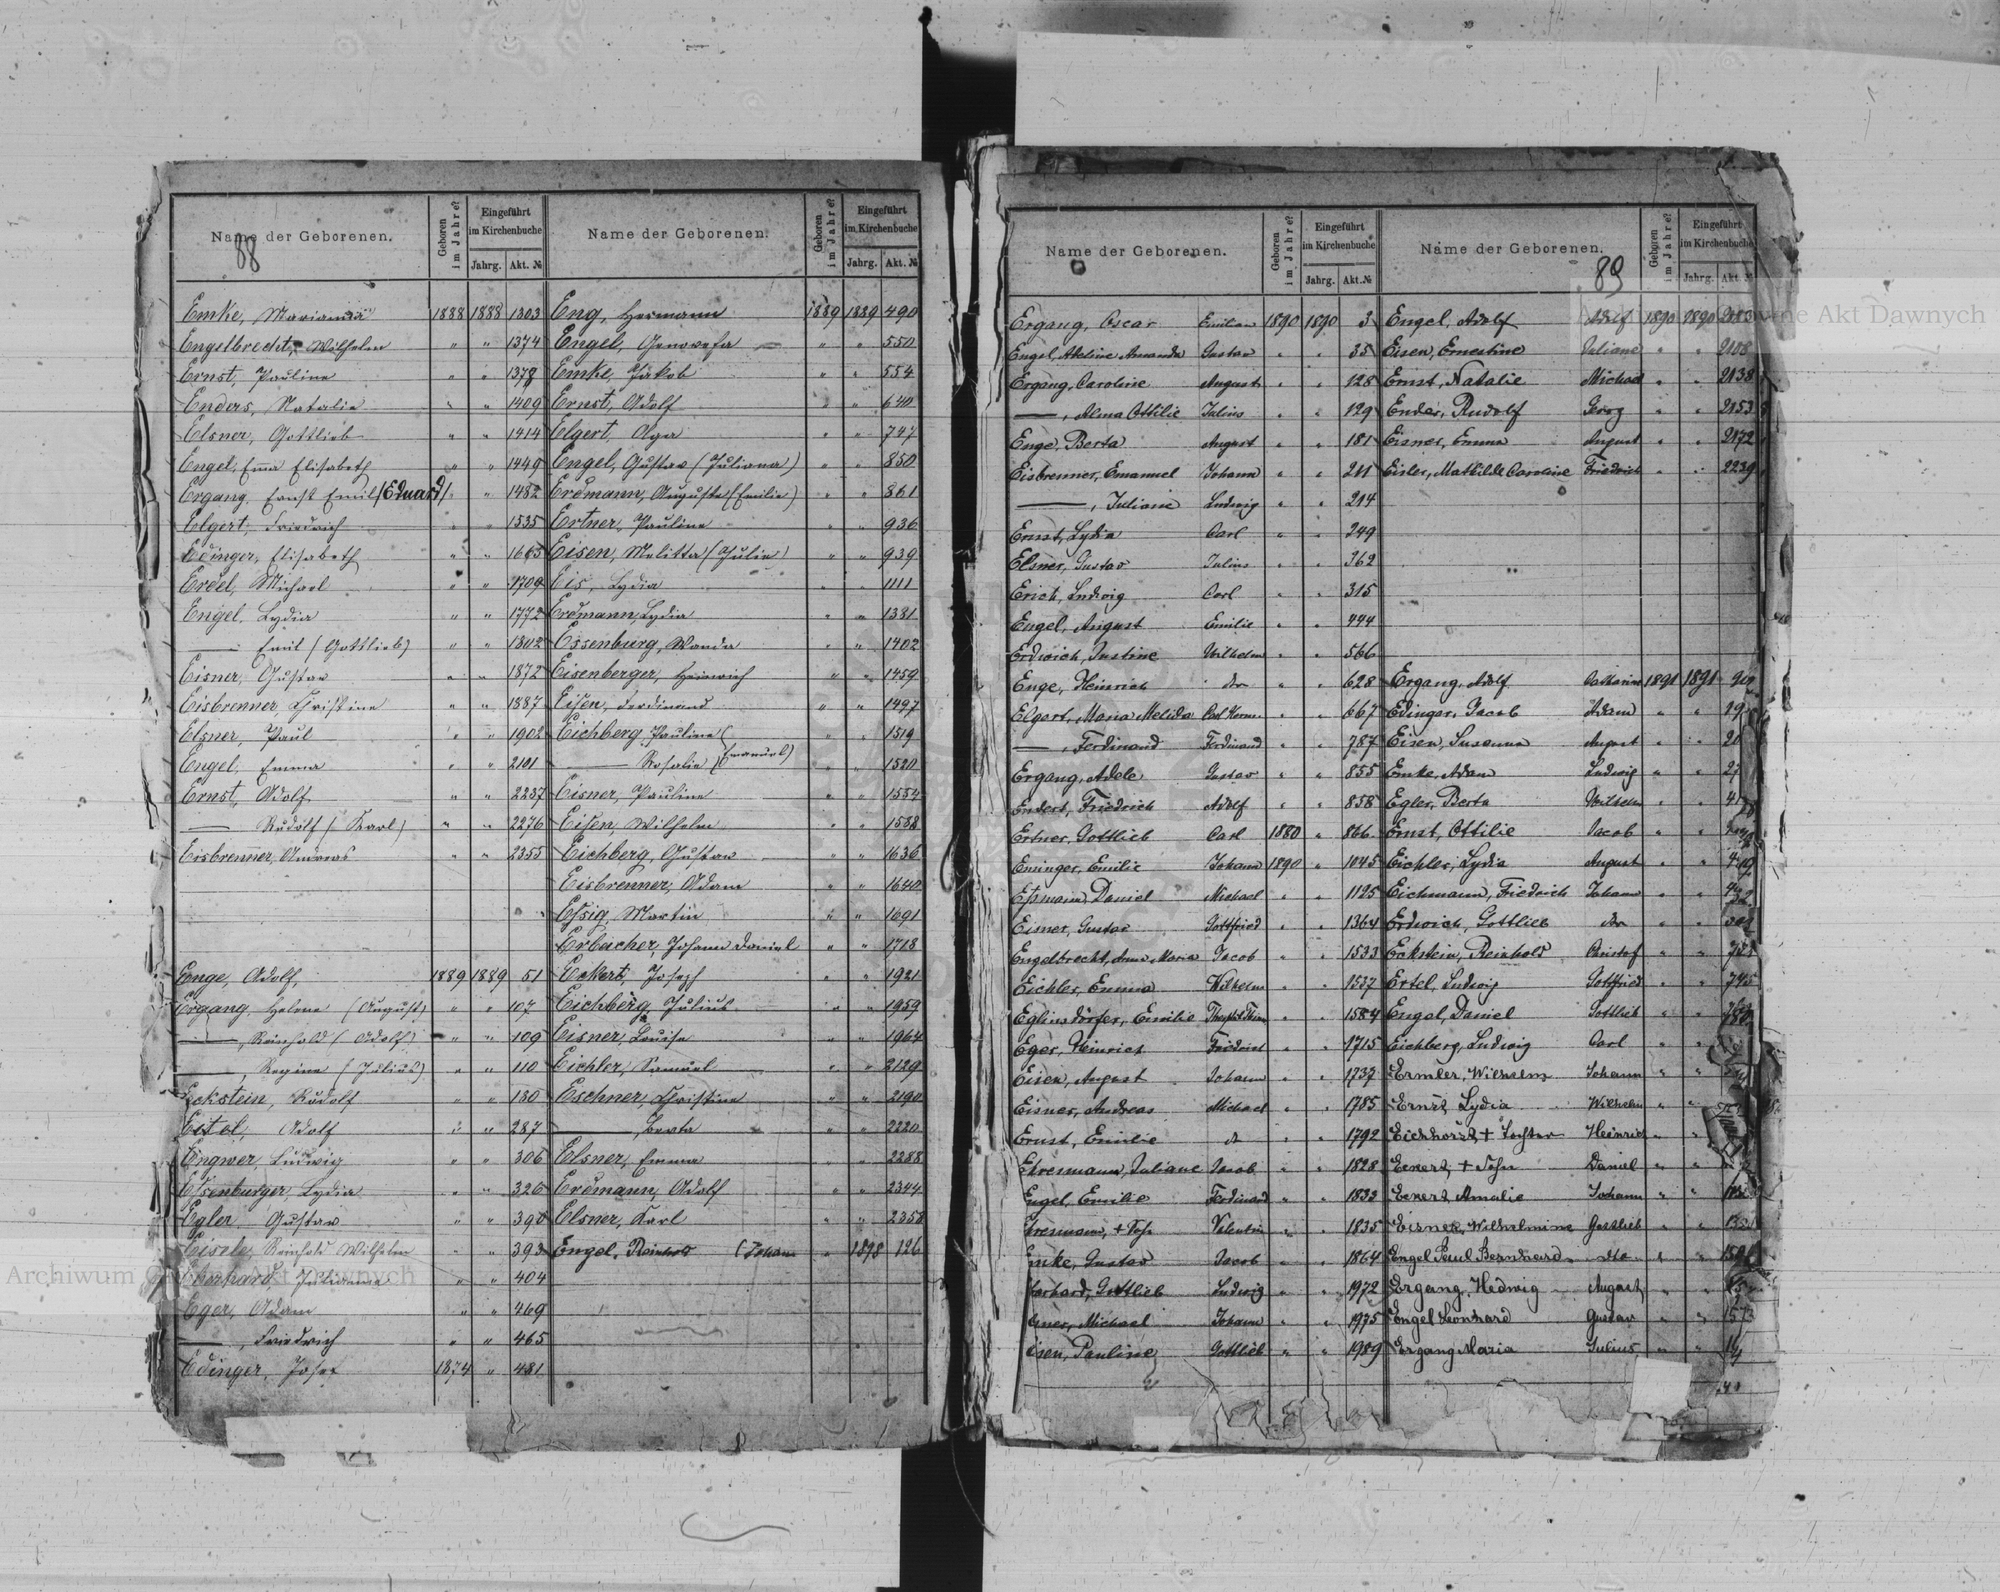 Name der Geborenen.
Geboren im Jahre?
Eingeführt im Kirchenbuche
Jahrg.
Akt. №
Name der Geborenen.
Geboren im Jahre?
Eingeführt im Kirchenbuche
Jahrg.
Akt. №
88
Emke, Marianna 1888 1888 1303
Engelbrecht, Wilhelm " " 1374
Ernst, Pauline " " 1378
Enders, Natalie " " 1409
Elsner, Gottlieb " " 1414
Engel, Emma Elisabeth " " 1449
Ergang, Ernst Emil (Eduard) " " 1482
Elgert, Friedrich " " 1535
Edinger, Elisabeth " " 1663
Erdel, Michael " " 1709
Engel, Lydia " " 1772
— Emil (Gottlieb) " " 1802
Eisner, Gustav " " 1872
Eisbrenner, Christine " " 1887
Elsner, Paul " " 1902
Engel, Emma " " 2101
Ernst, Adolf " " 2237
— Rudolf (Karl) " " 2276
Eisbrenner, Andreas " " 2355
Enge, Adolf, 1889 1889 51
Ergang, Helene (August) " " 107
—, Reinhold (Adolf) " " 109
—, Regine (Julius) " " 110
Eckstein, Rudolf " " 180
Eitel, Adolf " " 287
Engwer, Ludwig " " 306
Essenburger, Lydia " " 326
Egler, Gustav " " 390
Eisele, Reinhold Wilhelm " " 393
Eberhard, Julianna " " 404
Eger, Adam " " 469
—, Friedrich " " 465
Edinger, Josef 1874 " 481
Eng, Hermann 1889 1889 490
Engel, Genowefa " " 550
Emke, Jakob " " 554
Ernst, Adolf " " 640
Elgert, Olga " " 747
Engel, Gustav (Juliana) " " 850
Erdmann, Auguste (Emilie) " " 861
Ertner, Pauline " " 936
Eisen, Melitta (Julie) " " 939
Eis, Lydia " " 1111
Erdmann, Lydia " " 1381
Essenburg, Wanda " " 1402
Eisenberger, Heinrich " " 1459
Eisen, Ferdinand " " 1497
Eichberg, Pauline ( " " 1519
— Rosalie (Emanuel) " " 1520
Eisner, Pauline " " 1554
Eisen, Wilhelm " " 1588
Eichberg, Gustav " " 1636
Eisbrenner, Adam " " 1640
Essig, Martin " " 1691
Erbacher, Johann Daniel " " 1718
Eckert, Joseph " " 1921
Eichberg, Julius " " 1959
Eisner, Louise " " 1964
Eichler, Samuel " " 2129
Eschner, Christine " " 2190
—, Berta " " 2220
Elsner, Emma " " 2288
Erdmann, Adolf " " 2344
Elsner, Karl " " 2358
Engel, Reinhold (Johann " 1898 126
Name der Geborenen.
Geboren im Jahre?
Eingeführt im Kirchenbuche
Jahrg.
Akt. №
Name der Geborenen.
Geboren im Jahre?
Eingeführt im Kirchenbuche
Jahrg.
Akt. №
89
Ergang, Oscar Emilian 1890 1890 3
Engel, Adeline Amanda Gustav " " 35
Ergang, Caroline August " " 128
—, Alma Ottilie Julius " " 129
Enge, Berta August " " 181
Eisbrenner, Emanuel Johann " " 211
—, Juliane Ludwig " " 214
Ernst, Lydia Carl " " 249
Elsner, Gustav Julius " " 362
Erich, Ludwig Carl " " 315
Engel, August Emilie " " 444
Erdwich, Justine Wilhelm " " 566
Enge, Heinrich dto " " 628
Elgert, Maria Melida Carl Herm " " 667
—, Ferdinand Ferdinand " " 787
Ergang, Adele Gustav " " 855
Endert, Friedrich Adolf " " 858
Ertner, Gottlieb Carl 1880 " 866
Eninger, Emilie Johann 1890 " 1045
Eßmann, Daniel Michael " " 1125
Eisner, Gustav Gottfried " " 1364
Engelbrecht, Anna Maria Jacob " " 1533
Eichler, Emma Wilhelm " " 1537
Eglinsdörfer, Emilie " " 1584
Eger, Heinrich Friedrich " " 1715
Eisen, August Johann " " 1737
Eisner, Andreas Michael " " 1785
Ernst, Emilie dt " " 1792
Ehresmann, Juliane Jacob " " 1828
Engel, Emilie Ferdinand " " 1832
Ehresmann, + Sohn Valentin " " 1835
Emke, Gustav Jacob " " 1864
Eberhard, Gottlieb Ludwig " " 1972
Eisner, Michael Johann " " 1975
Eisen, Pauline Gottlieb " " 1989
Engel, Adolf Adolf 1890 1890
Eisen, Ernestine Juliane " " 2108
Ernst, Natalie Michael " " 2138
Ender, Rudolf Georg " " 2153
Eisner, Emma August " " 2172
Eisler, Mathilde Caroline Friedrich " " 2239
Ergang, Adolf Catharine 1891 1891
Edinger, Jacob Adam " " 19
Eisen, Susanna August " " 20
Emke, Adam Ludwig " " 27
Egler, Berta Wilhelm " "
Ernst, Ottilie Jacob " "
Eichler, Lydia August " "
Eichmann, Friedrich Johann " "
Erdwich, Gottlieb dto " "
Eckstein, Reinhold Christof " "
Ertel, Ludwig Gottfried " " 745
Engel, Daniel Gottlieb " "
Eichberg, Ludwig Carl " "
Ermler, Wilhelm Johann " "
Ernst, Lydia Wilhelm " "
Eichhorst, + Tochter Heinrich " "
Eckert, + Sohn Daniel " "
Eckert, Amalie Johann " "
Eisner, Wilhelmine Gottlieb " "
Engel Paul Bernhard dto " "
Ergang, Hedwig August " "
Engel Leonhard Gustav " " 1573
Ergang Maria Julius " "
Archiwum Główne Akt Dawnych
Archiwum Główne Akt Dawnych